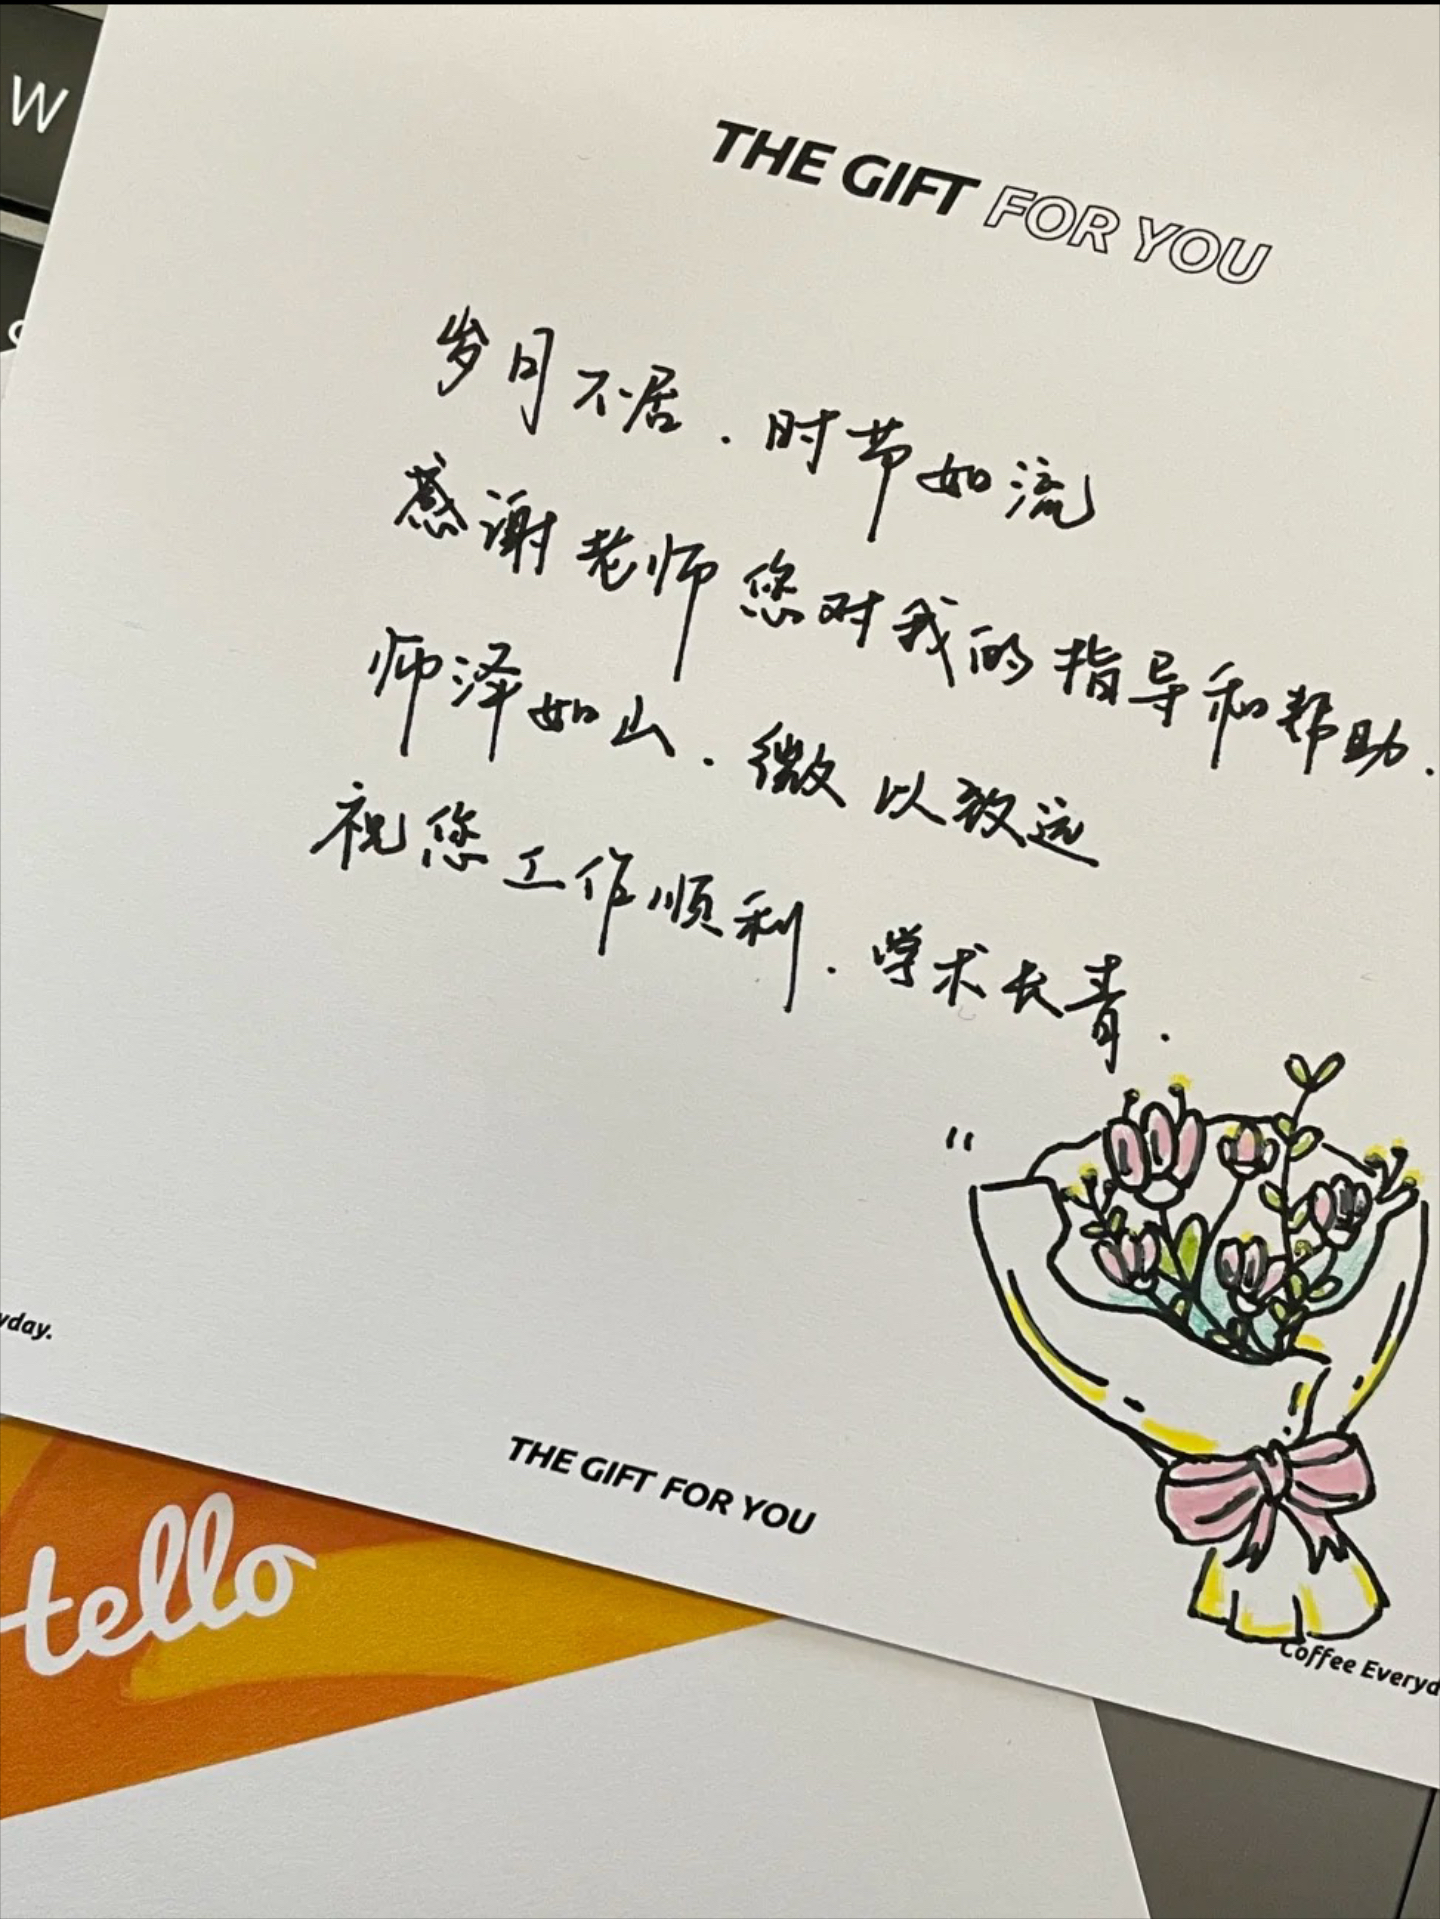 W
THE GIFT FOR YOU
岁月不居.时节如流
感谢老师您对我的指导和帮助.
师泽如山.微以致远
祝您工作顺利.学术长青.
yday.
THE GIFT FOR YOU
Coffee Everyd